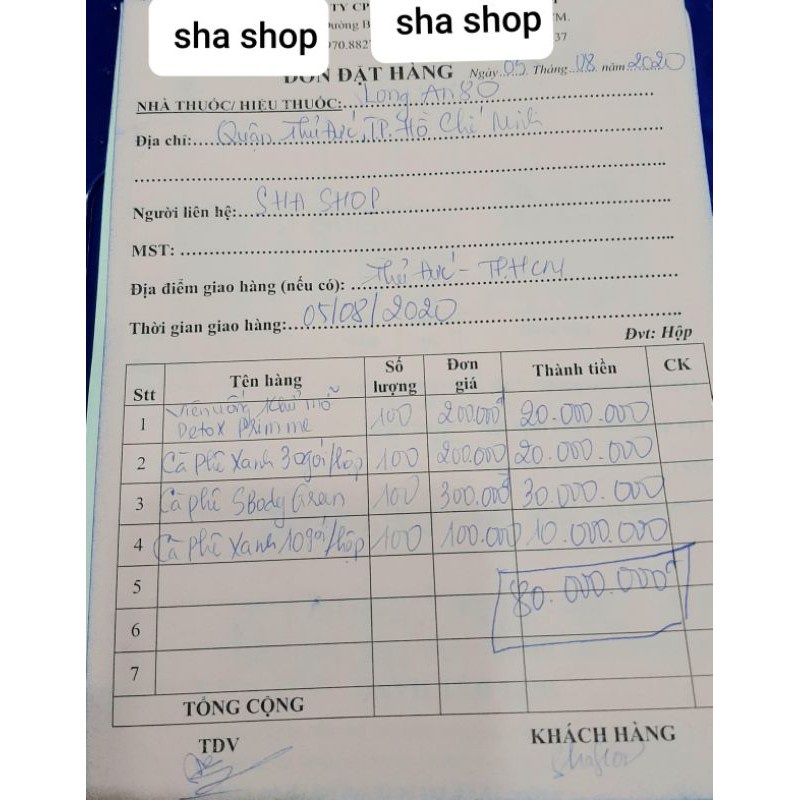 sha shop
sha shop
TY CP
ường B
CM.
970.882
37
ĐƠN ĐẶT HÀNG Ngày 05 Tháng 08 năm 2020
NHÀ THUỐC/ HIỆU THUỐC: Long An 80
Địa chỉ: Quận Thủ Đức, TP. Hồ Chí Minh
Người liên hệ: SHA SHOP
MST:
Địa điểm giao hàng (nếu có): Thủ Đức - TP.HCM
Thời gian giao hàng: 05/08/2020
Đvt: Hộp
Stt Tên hàng Số lượng Đơn giá Thành tiền CK
1 Viên uống Khử mỡ Detox Primme 100 200.000đ 20.000.000
2 Cà phê Xanh 30gói/hộp 100 200.000 20.000.000
3 Cà phê SBody Green 100 300.000đ 30.000.000
4 Cà Phê Xanh 10gói/hộp 100 100.000 10.000.000
5 80.000.000đ
6
7
TỔNG CỘNG
TDV KHÁCH HÀNG